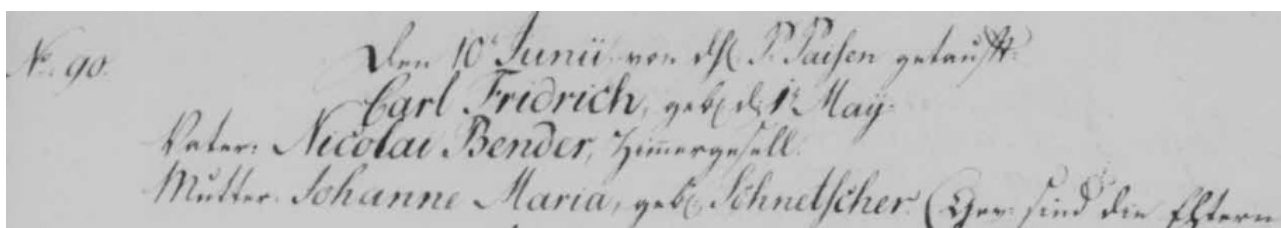 No. 90. Den 10t Junii von dh. P. Paisen getaufft:
Carl Fridrich, geb. d. 1t May.
Vater: Nicolai Bender, Zimmergesell.
Mutter: Johanne Maria, geb. Schnetscher. ( sind die Eltern